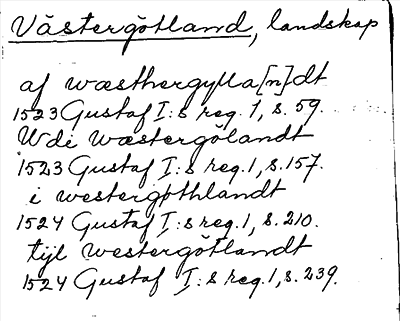 Västergötland, landskap
af wæsthergylla[n]dt
1523 Gustaf I:s reg. 1, s. 59.
Wdi wæstergölandt
1523 Gustaf I:s reg. 1, s. 157.
i westergöthlandt
1524 Gustaf I:s reg. 1, s. 210.
tijl westergötlandt
1524 Gustaf I:s reg. 1, s. 239.